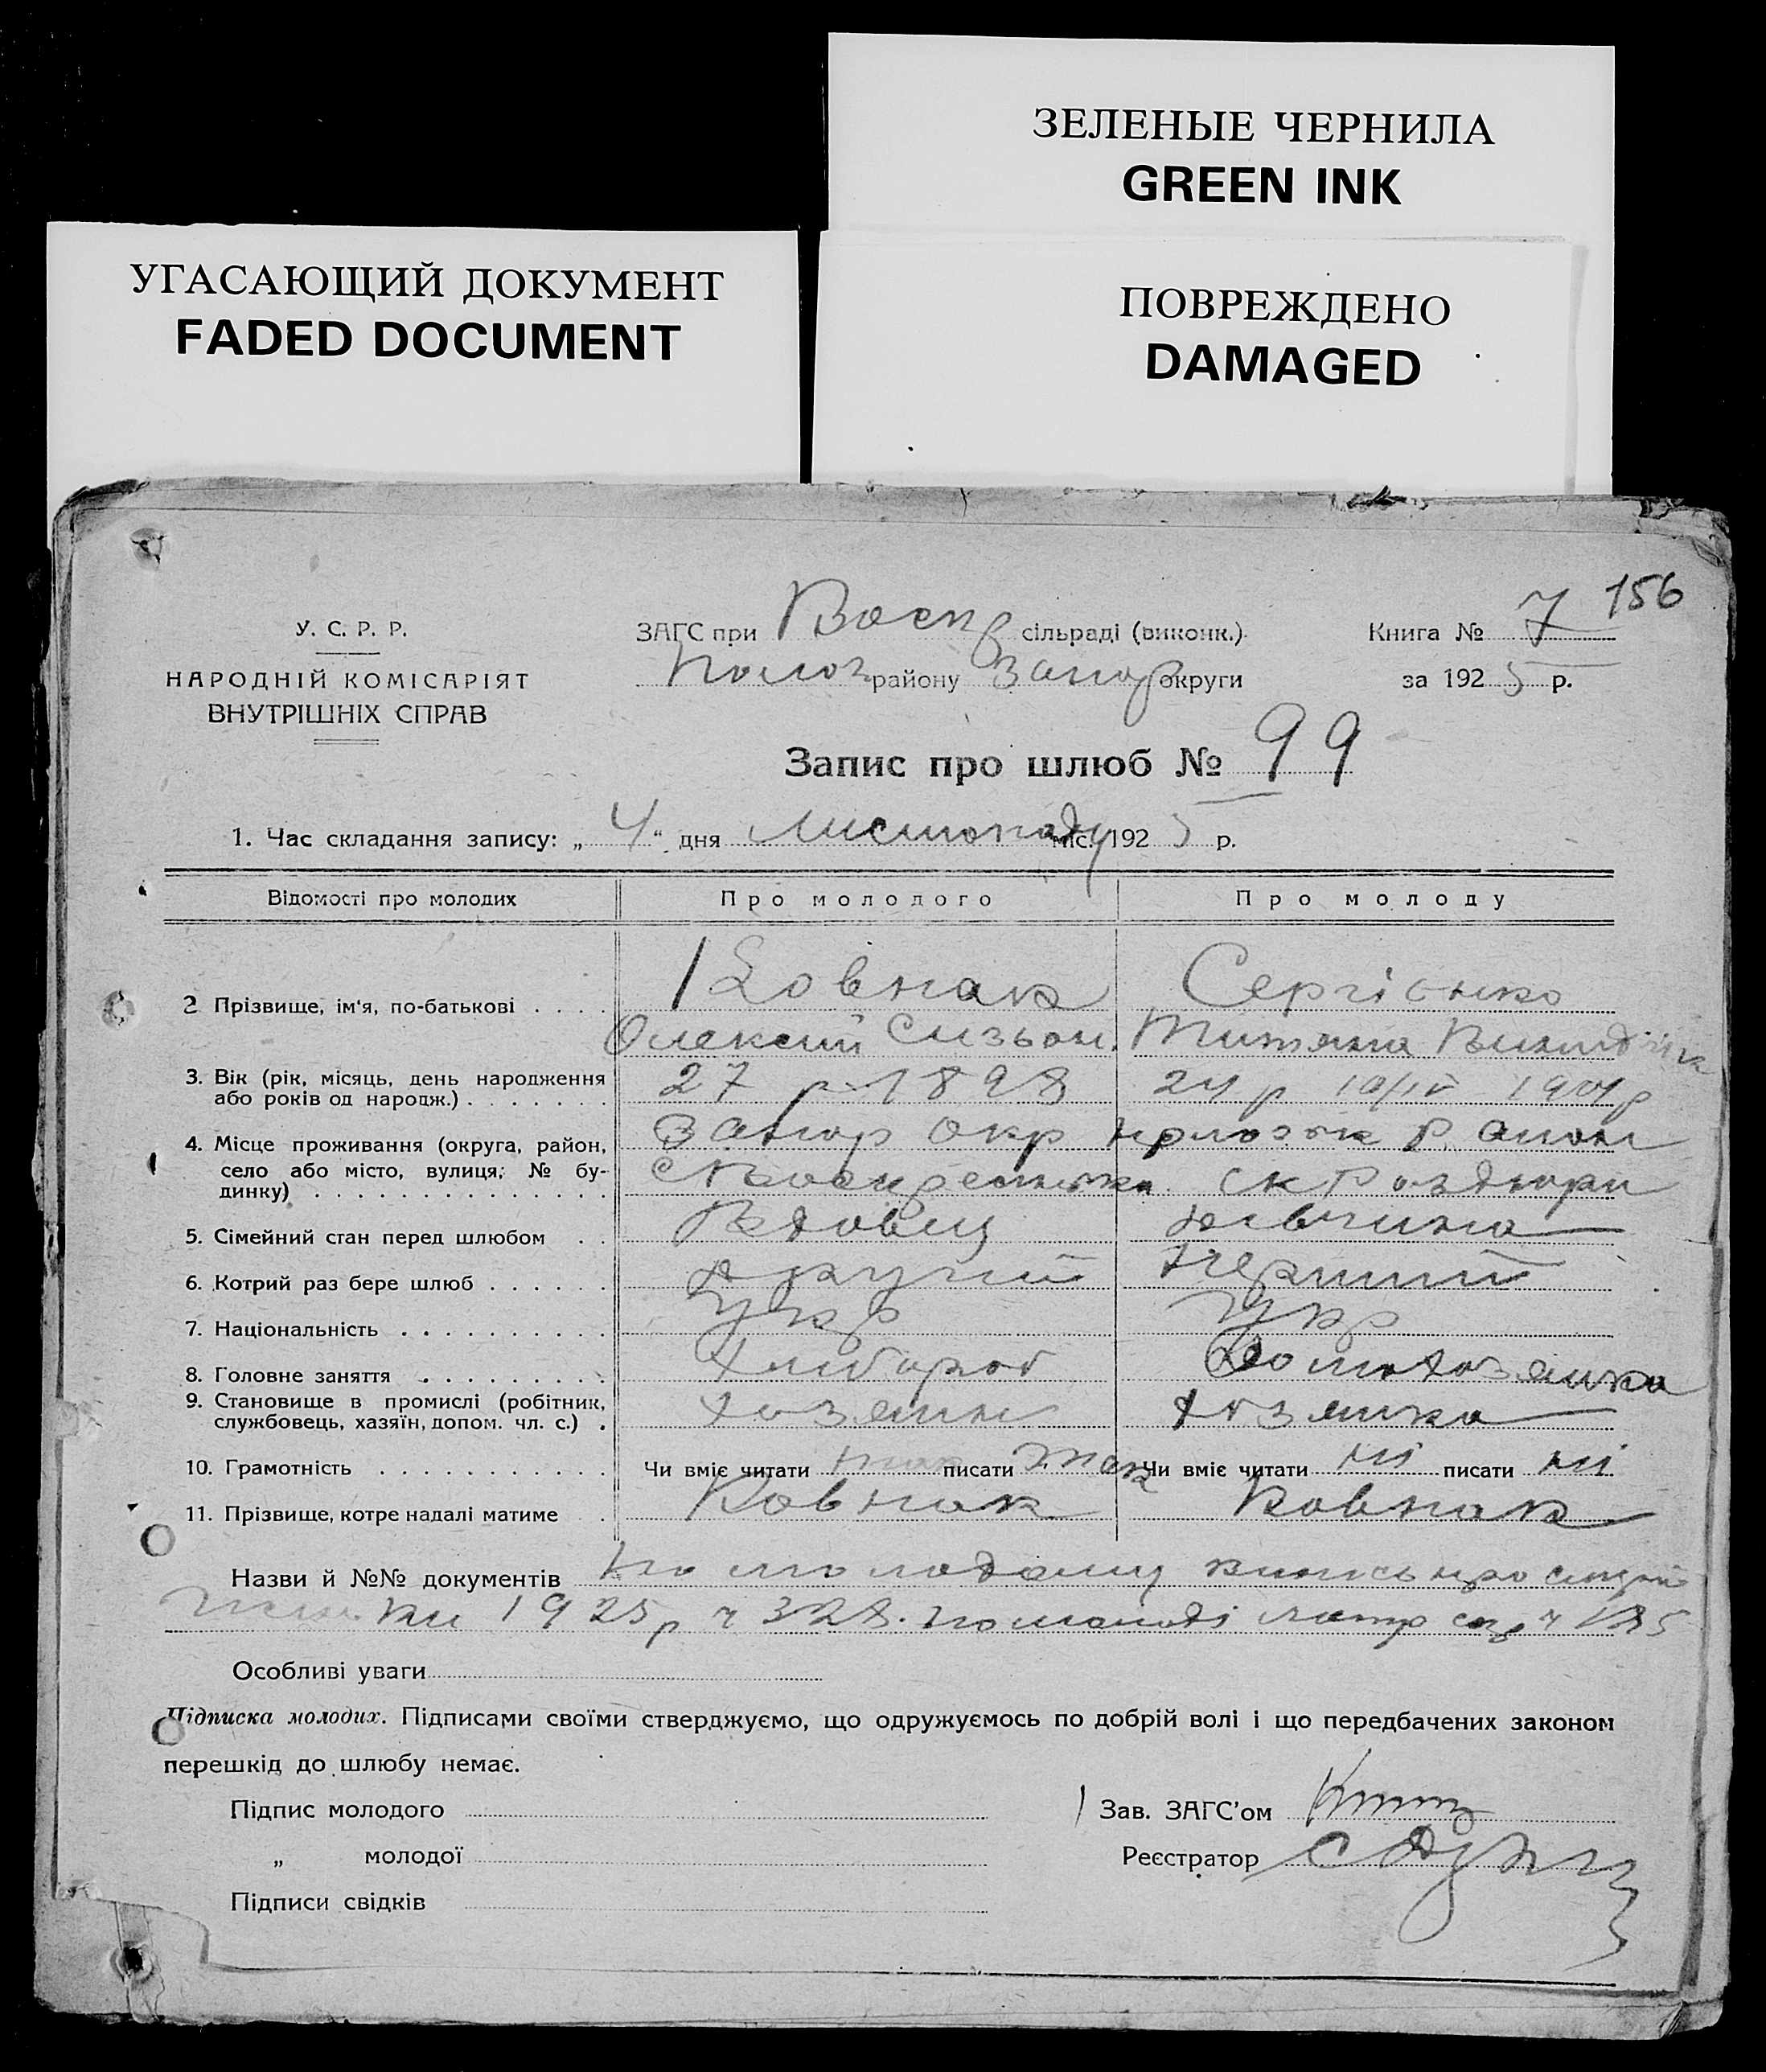 ЗЕЛЕНЫЕ ЧЕРНИЛА
GREEN INK
УГАСАЮЩИЙ ДОКУМЕНТ
FADED DOCUMENT
ПОВРЕЖДЕНО
DAMAGED
156
У. С. Р. Р.
НАРОДНІЙ КОМІСАРІЯТ
ВНУТРІШНІХ СПРАВ
ЗАГС при Воскр сільраді (виконк.)
Полог району Запор округи
Книга № 7
за 1925 р.
Запис про шлюб № 99
1. Час складання запису: „ 4 “ дня листопаду міс. 1925 р.
Відомості про молодих Про молодого Про молоду
2 Прізвище, ім'я, по-батькові . . . . Ковпак Сергієнко
Олексій Сизьон. Титяна
3. Вік (рік, місяць, день народження
або років од народж.) . . . . . . . 27 р 1898 24 р 10/IV 1901 р
4. Місце проживання (округа, район,
село або місто, вулиця, № бу-
динку) . . . . . . . . . . . . . Запор окр район
5. Сімейний стан перед шлюбом . . Вдовец дівчина
6. Котрий раз бере шлюб . . . . . . другий перший
7. Національність . . . . . . . . . . Укр Укр
8. Головне заняття . . . . . . . . . хлибороб Домохозяйка
9. Становище в промислі (робітник,
службовець, хазяїн, допом. чл. с.) . хозяин хозяйка
10. Грамотність . . . . . . . . . . . Чи вміє читати так писати так Чи вміє читати ні писати ні
11. Прізвище, котре надалі матиме . Ковпак Ковпак
Назви й №№ документів по молодому випись про смерть
1925 р ч 328. по молоді метр ч 185
Особливі уваги
Підписка молодих. Підписами своїми стверджуємо, що одружуємось по добрій волі і що передбачених законом
перешкід до шлюбу немає.
Підпис молодого
„ молодої
Підписи свідків
Зав. ЗАГС'ом
Реєстратор